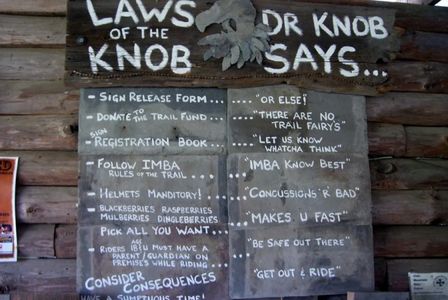 LAWS
OF THE
KNOB
DR KNOB
SAYS...
- SIGN RELEASE FORM... ... "OR ELSE!"
- DONATE TO THE TRAIL FUND... ... "THERE ARE NO
TRAIL FAIRY'S"
- SIGN REGISTRATION BOOK... ... "LET US KNOW
WHATCHA THINK"
- FOLLOW IMBA
RULES OF THE TRAIL... ... "IMBA KNOW BEST"
- HELMETS MANDITORY! ... "CONCUSSIONS 'R' BAD"
- BLACKBERRIES RASPBERRIES
MULBERRIES DINGLEBERRIES
PICK ALL YOU WANT... ... "MAKES U FAST"
- RIDERS AGE 18<U MUST HAVE A
PARENT/GUARDIAN ON
PREMISE'S WHILE RIDING... ... "BE SAFE OUT THERE"
CONSIDER
CONSEQUENCES
"GET OUT & RIDE"
HAVE A SUMPTUOUS TIME!